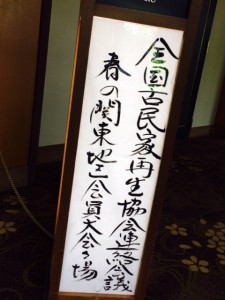 全国古民家再生協会連絡会議
春の関東地区会員大会々場